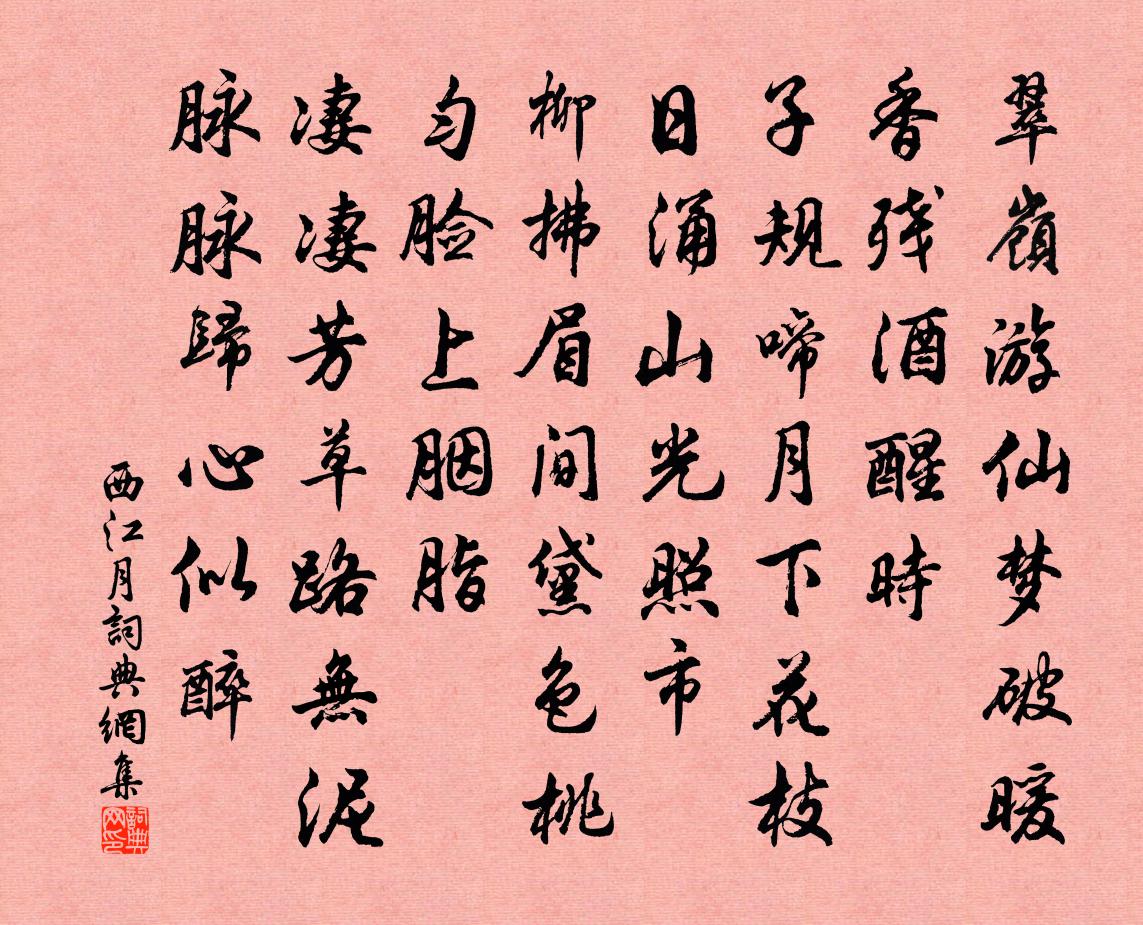 翠嶺游仙梦破暖
香残酒醒時
子规啼月下花枝
日涌山光照市
柳拂眉间黛色桃
匀脸上胭脂
凄凄芳草路無泥
脉脉歸心似醉
西江月詞典網集
詞典网印